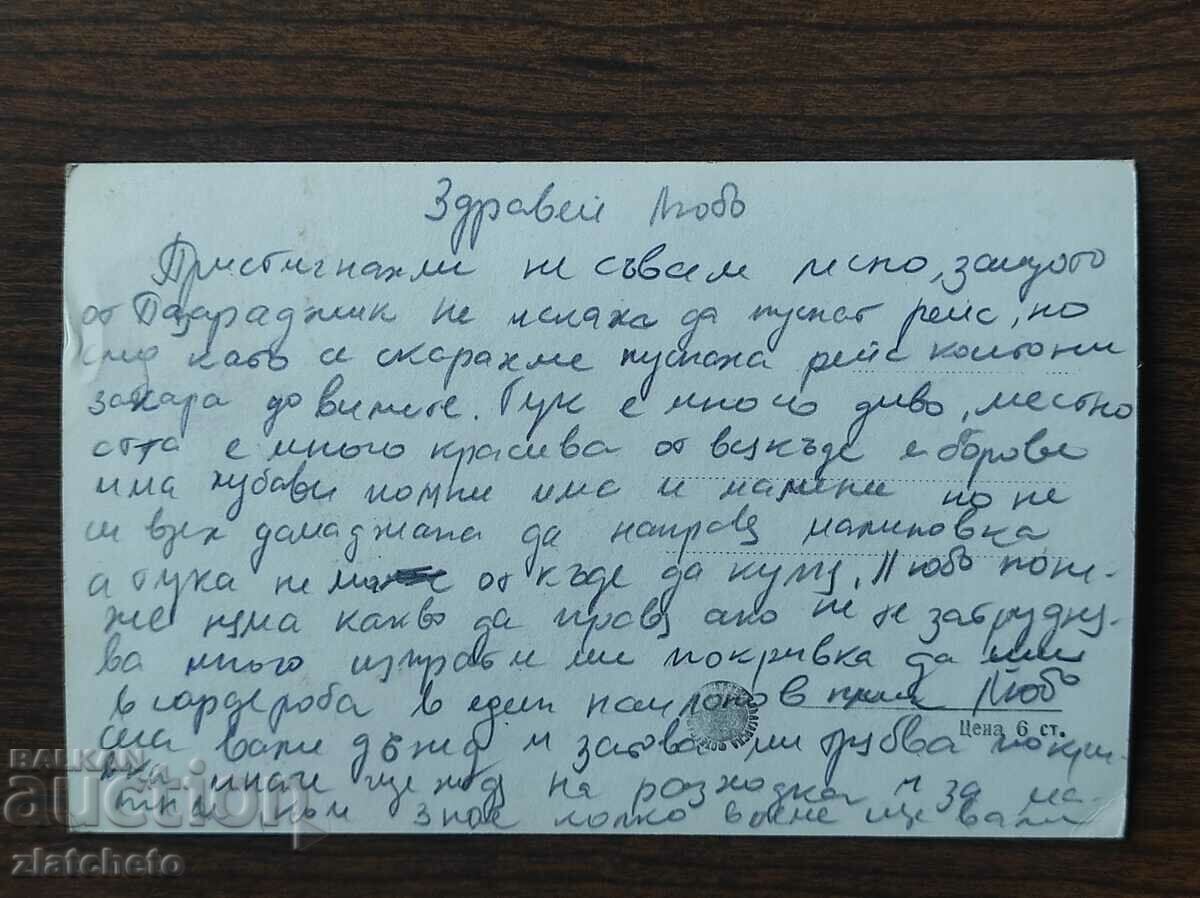 Здравей Любъ
Пристигнахме не съвсем лесно, защото
от Пазараджик не искаха да пуснат рейс, но
след като се скарахме пуснаха рейс който ни
закара до вилите. Тук е много диво, местно
стта е много красива от всякъде е борове
има хубави поляни има и малини но не
си взех дамаджана да направя малиновка
а тука нема от къде да купя. Любъ поне-
же няма какво да правя ако не те затрудня-
ва много изпрати ми покривка да
в гардероба в един найлонов плик Любъ
сега вали дъжд и затова ми трябва покри-
вка иначе ще ходя на разходка и за ма-
лини към зная колко време ще вали
Цена 6 ст.
BALKAN
auction
zlatcheto